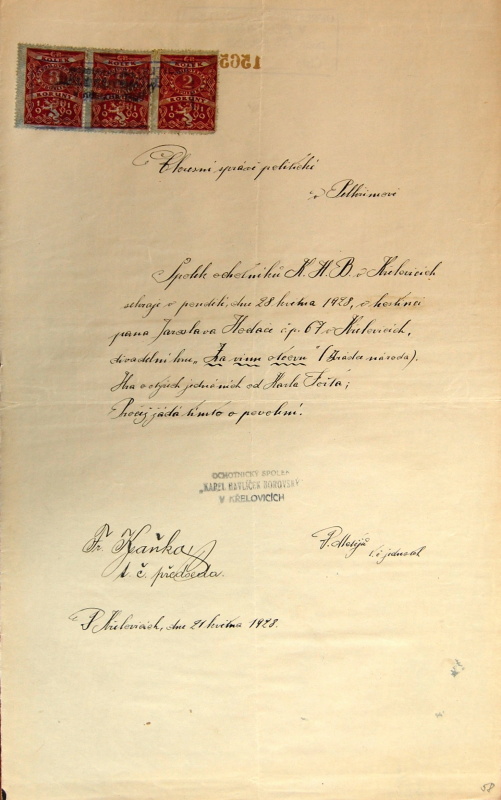 1565
Okresní správě politické
v Pelhřimově
Spolek ochotníků K. H. B. v Křelovicích
sehraje v pondělí, dne 28. května 1928, v hostinci
pana Jaroslava Hodače č.p. 67. v Křelovicích,
divadelní hru, "Za vinu otcovu" (Zrádce národa).
Hra o 
jednáních od Karla Fořta;
Pročež žádá tímto o povolení.
OCHOTNICKÝ SPOLEK
„KAREL HAVLÍČEK BOROVSKÝ"
V KŘELOVICÍCH
Fr. Kaňka
t. č. předseda.
t. č. jednatel
V Křelovicích, dne 21. května 1928.